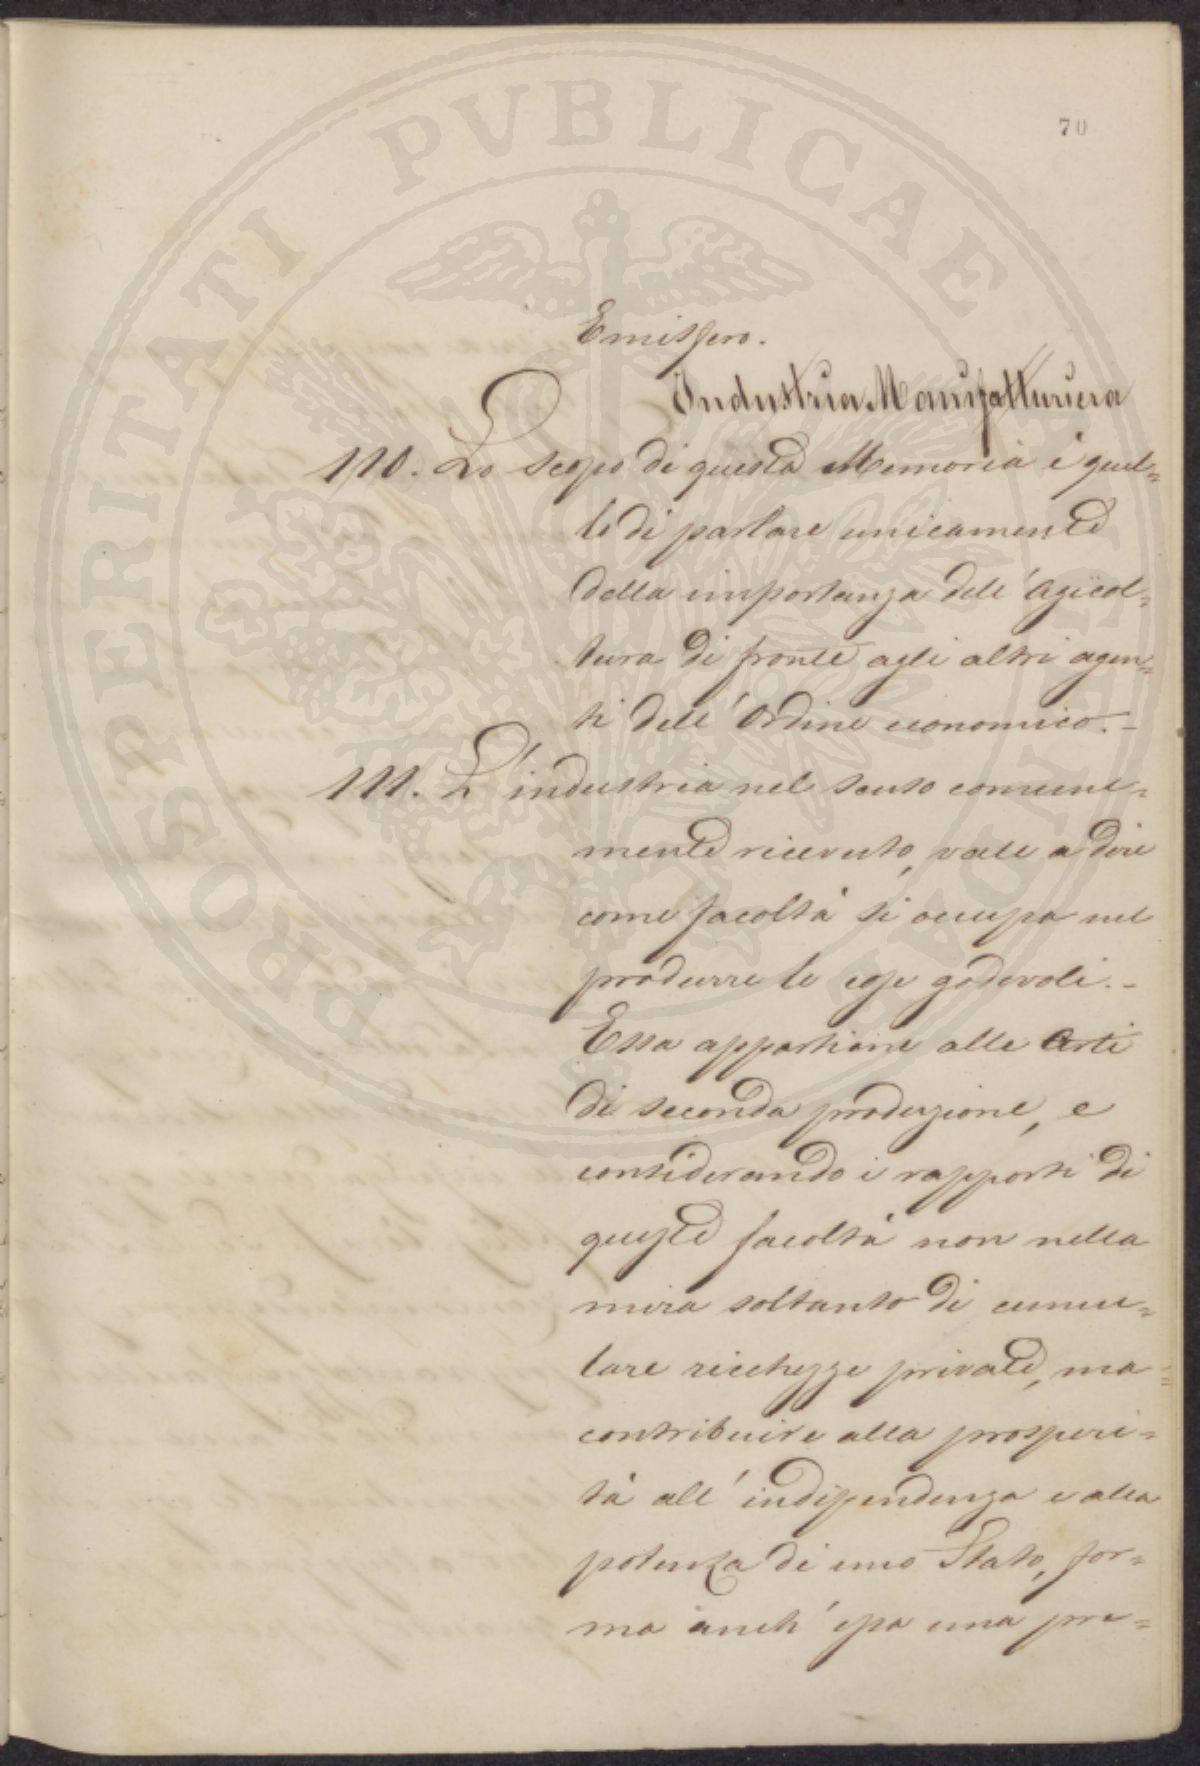 70
PROSPERITATI PVBLICAE
Emisfero.
Industria Manifatturiera
110. Lo scopo di questa Memoria è quel=
lo di parlare unicamente
della importanza dell'Agricol=
tura di fronte agli altri agen=
ti dell'Ordine economico. -
111. L'industria nel senso comune=
mente ricevuto, vale a dire
come facoltà si occupa nel
produrre le cose godevoli. -
Essa appartiene alle Arti
di seconda produzione, e
considerando i rapporti di
queste facoltà non nella
mira soltanto di cumu=
lare ricchezze private, ma
contribuire alla prosperi=
tà all'indipendenza e alla
potenza di uno Stato, for=
ma anch'essa una pre=